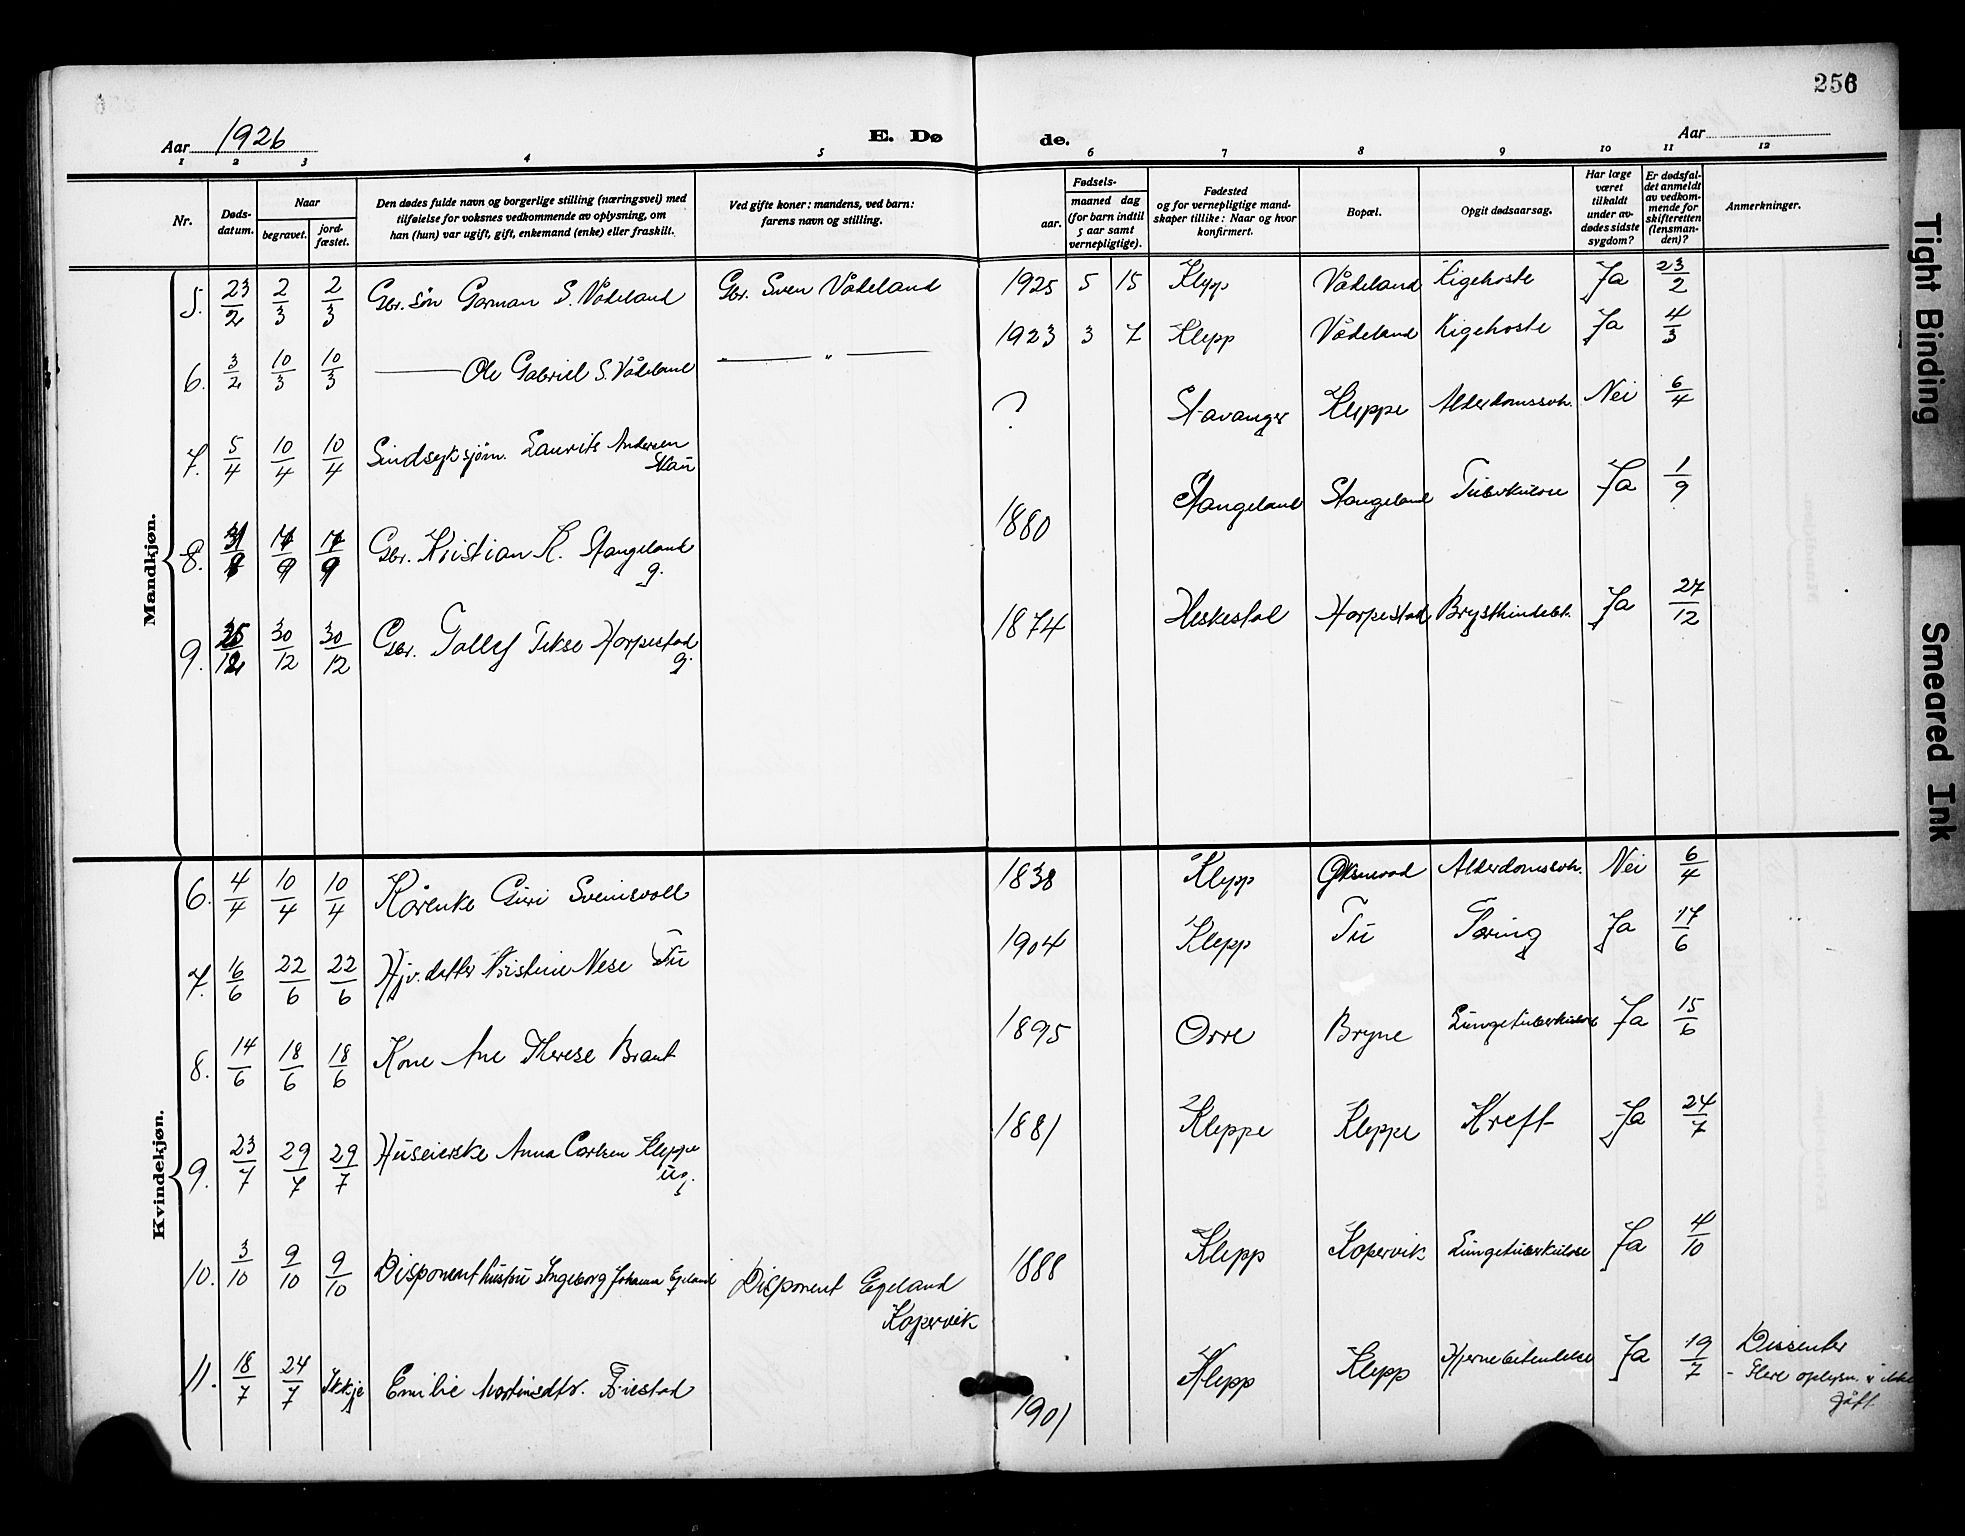 256
Aar 1926
E. Dø de.
Aar
1 2 3 4 5 6 7 8 9 10 11 12
Nr.
Døds-
datum.
Naar
begravet.
jord-
fæstet.
Den dødes fulde navn og borgerlige stilling (næringsvei) med
tilføielse for voksnes vedkommende av oplysning, om
han (hun) var ugift, gift, enkemand (enke) eller fraskilt.
Ved gifte koner: mandens, ved barn:
farens navn og stilling.
Fødsels-
aar.
maaned dag
(for barn indtil
5 aar samt
vernepligtige).
Fødested
og for vernepligtige mand-
skaper tillike: Naar og hvor
konfirmert.
Bopæl.
Opgit dødsaarsag.
Har læge
været
tilkaldt
under av-
dødes sidste
sygdom?
Er dødsfal-
det anmeldt
av vedkom-
mende for
skifteretten
(lensman-
den)?
Anmerkninger.
Mandkjøn.
5. 23/2 2/3 2/3 Gbr. søn Garman S. Vådeland Gbr. Sven Vådeland 1925 5 15 Klepp Vådeland Kigehoste Ja 23/2
6. 3/2 10/3 10/3 — Ole Gabriel S. Vådeland — " — 1923 3 7 Klepp Vådeland Kigehoste Ja 4/3
7. 5/4 10/4 10/4 Sindsyk sjøm. Laurits Andersen ? Stavanger Kleppe Alderdomssvh. Nei 6/4
8. 31/8 /9 /9 Gbr. Kristian K. Stangeland 1880 Stangeland Stangeland Tuberkulose Ja 1/9
g.
9. /12 30/12 30/12 Gbr. Tollef Tekse Horpestad 1874 Heskestad Horpestad Brysthindebet. Ja 27/12
g.
Kvindekjøn.
6. 4/4 10/4 10/4 Kårenke Guri Sveinsvoll 1838 Klepp Øksnevad Alderdomssvh. Nei 6/4
7. 16/6 22/6 22/6 Hjv. datter Kristine Nese Tu 1904 Klepp Tu Tæring Ja 17/6
8. 14/6 18/6 18/6 Kone Ane Therese Braut 1895 Orre Bryne Lungetuberkulose Ja 15/6
9. 23/7 29/7 29/7 Huseierske Anna Carlsen Kleppe 1881 Kleppe Kleppe Kreft Ja 24/7
ug.
10. 3/10 9/10 9/10 Disponent hustru Ingeborg Johanna Egeland Disponent Egeland 1888 Klepp Kopervik Lungetuberkulose Ja 4/10
Kopervik
11. 18/7 24/7 Ikkje Emilie Martinsdtr. Friestad 1901 Klepp Klepp Hjernebetendelse Ja 19/7 Dissenter
- Flere oplysn. ikke
gåft.
Tight Binding
Smeared Ink